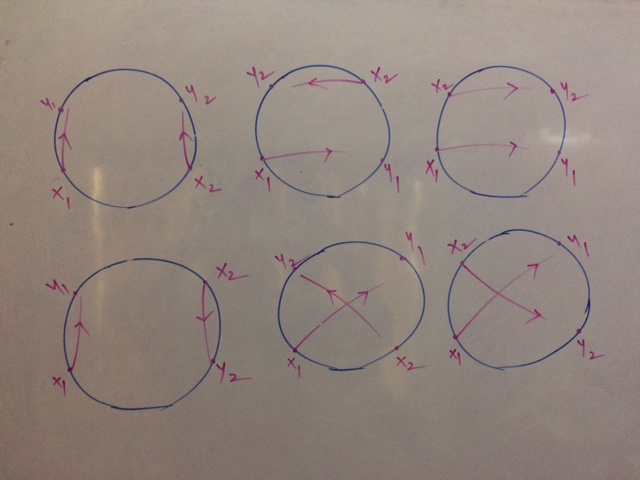 y₁ y₂
x₁ x₂
y₂ x₂
x₁ y₁
x₂ y₂
x₁ y₁
y₁ x₂
x₁ y₂
y₂ y₁
x₁ x₂
x₂ y₁
x₁ y₂